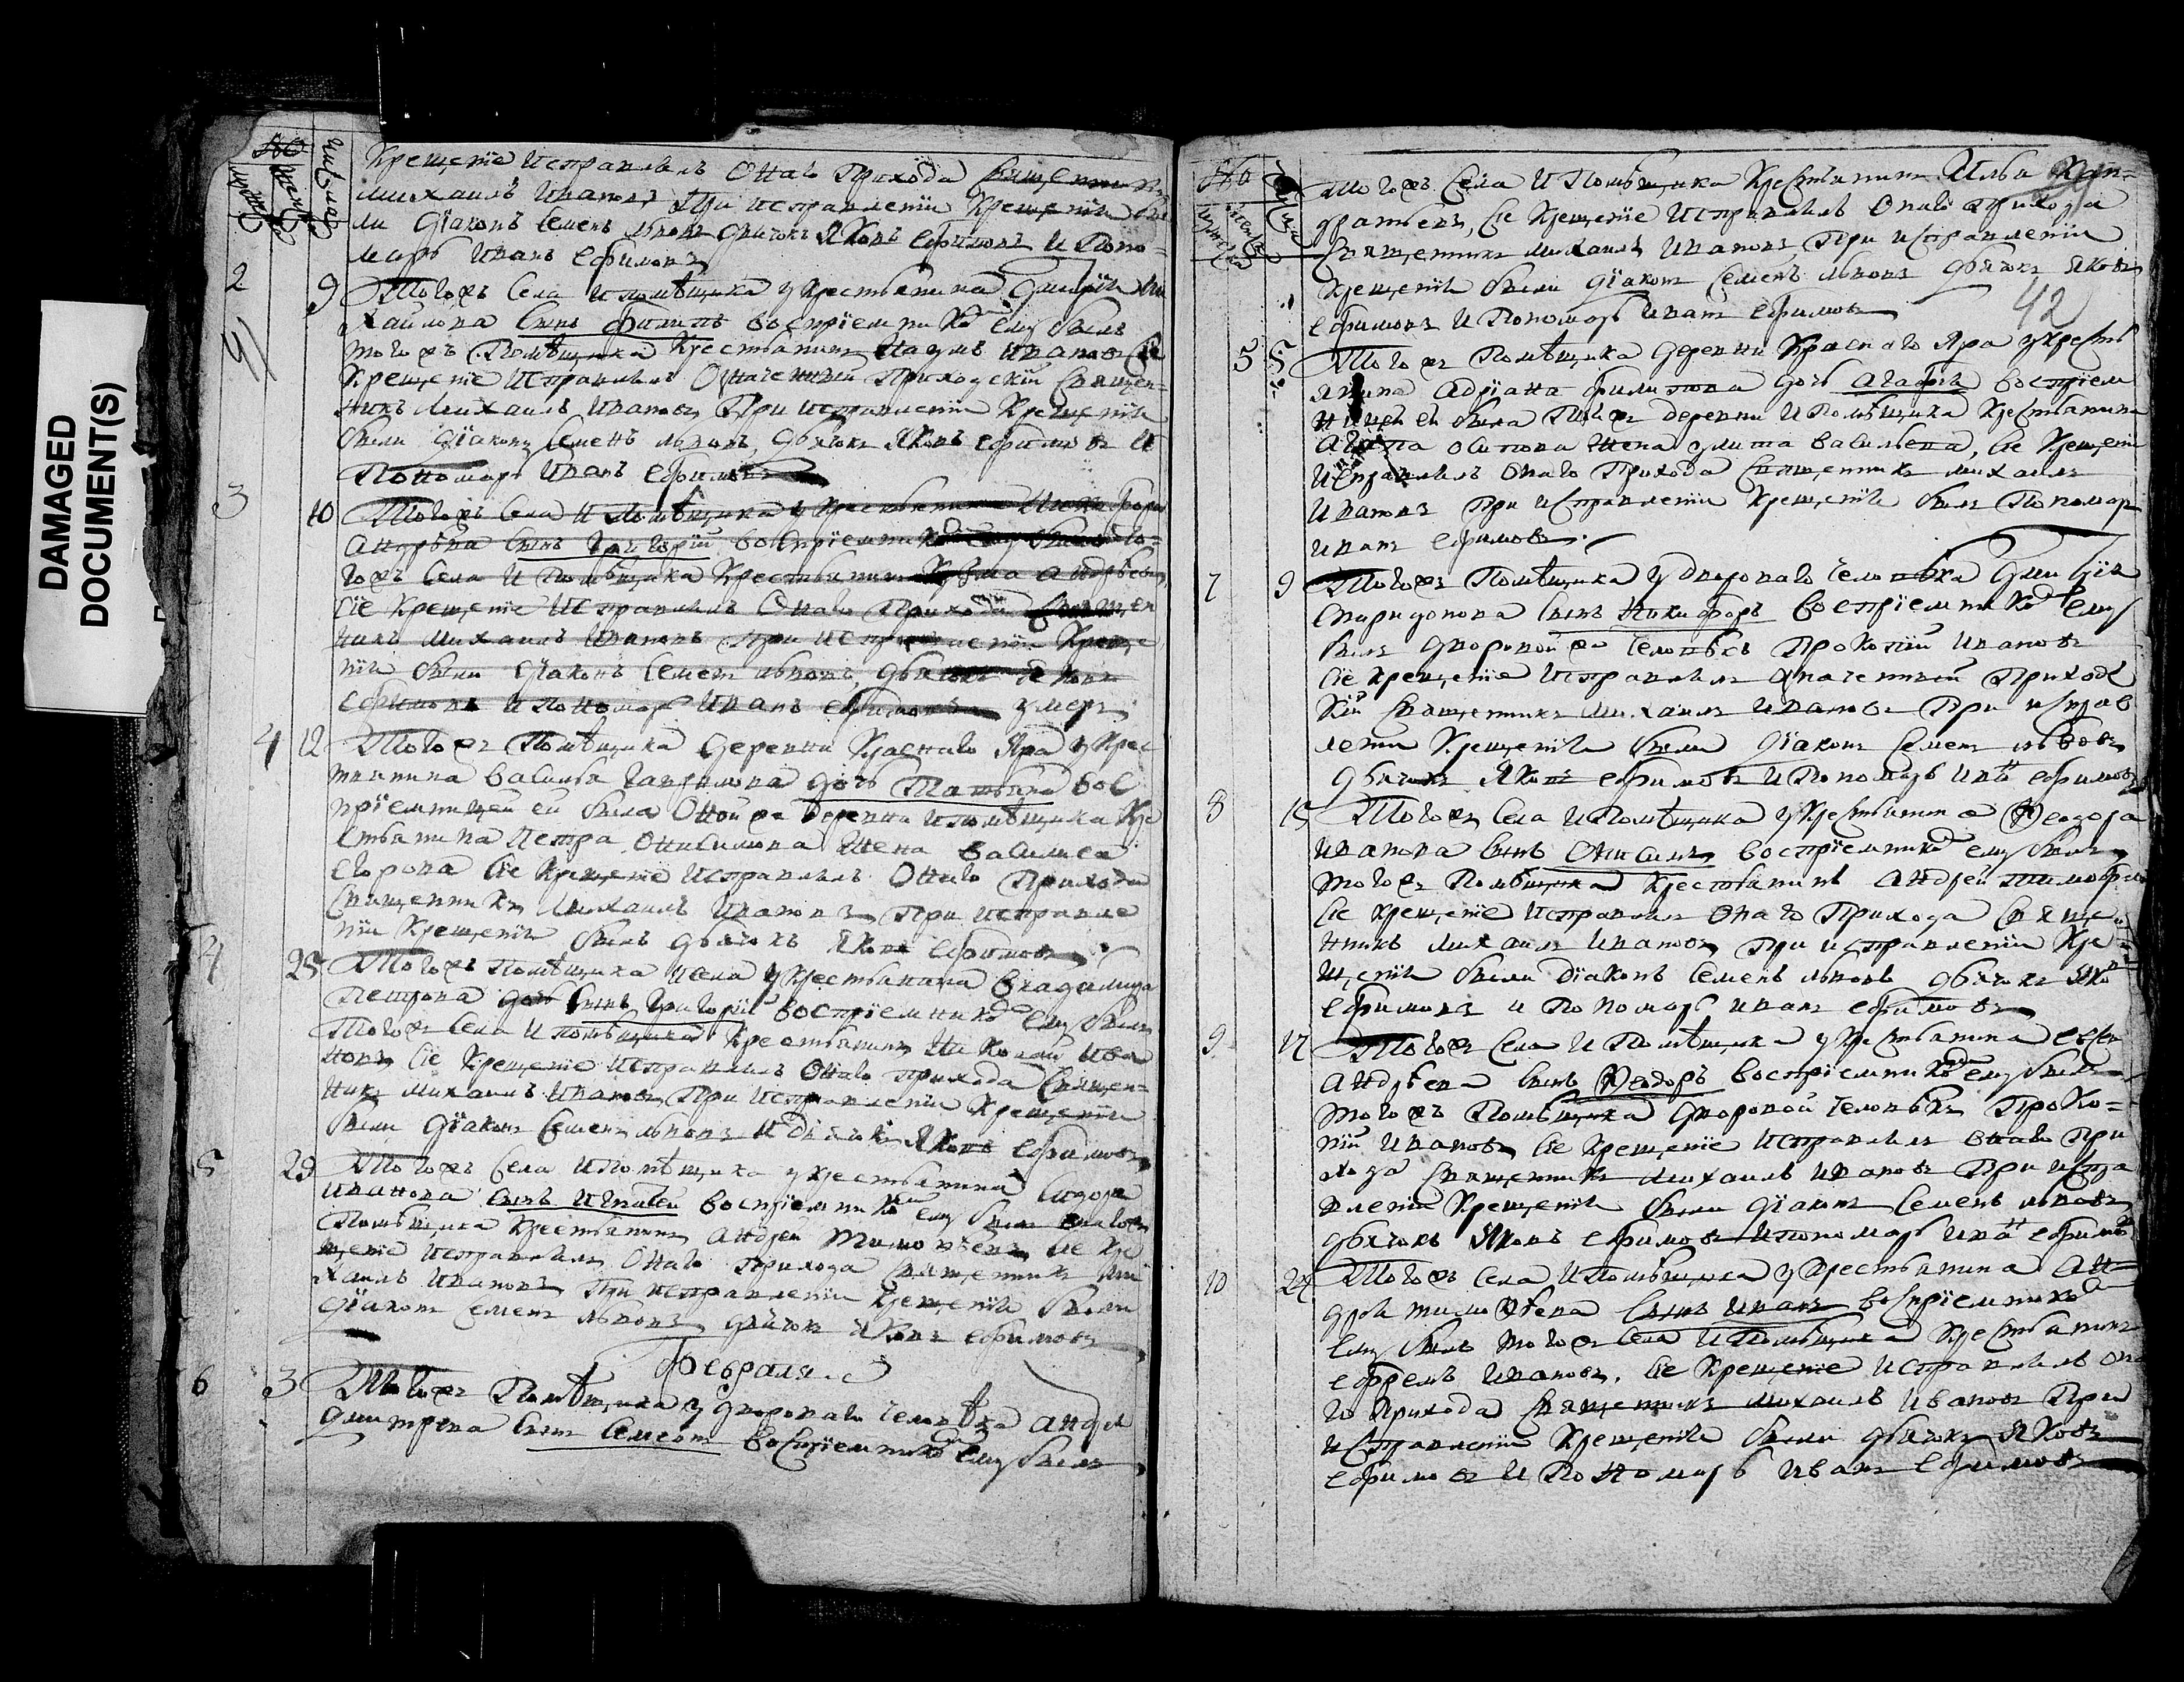 DAMAGED
DOCUMENT(S)
№
число
Крещенїе исправлялъ Онаго Прихода Священникъ
Михаилъ Ивановъ При исправленїи Крещенїя бы
ли Дїаконъ Семенъ Львовъ дьячокъ Яковъ Ефимовъ и Поно=
марь Иванъ Ефимовъ
2 9 Тогожъ Села и помѣщика у крестьянина Дмитрїя Ми
хайлова сынъ Филипъ воспрїемникомъ ему былъ
тогожъ помѣщика Крестьянинъ Наумъ Ивановъ Сїе
Крещенїе исправлялъ Означенный Приходскїй Священ=
никъ Михаилъ Ивановъ При исправленїи Крещенїя
были Дїаконъ Семенъ Львовъ, Дьячокъ Яковъ Ефимовъ и
Пономарь Иванъ Ефимовъ
3 10 Тогожъ Села и помѣщика у Крестьянина
Андрѣева сынъ Григорїй воспрїемникомъ ему былъ то=
гожъ Села и Помѣщика Крестьянинъ Андрѣевъ
Сїе Крещенїе исправлялъ Онаго Прихода Священ
никъ Михаилъ Ивановъ при исправленїи Креще
нїя были Дїаконъ Семенъ Львовъ, дьячокъ Яковъ
Ефимовъ и Пономарь Иванъ Ефимовъ умеръ
4 12 Тогожъ Помѣщика Деревни Краснаго Яра у Крес
тьянина Василья дочь Татьяна вос
прїемницей ей была Оной же Деревни и помѣщика Кре
стьянина Петра Онисимова Жена Василиса
Егорова Сїе Крещенїе исправлялъ Онаго Прихода
Священникъ Михаилъ Ивановъ При исправле
нїи Крещенїя былъ дьячокъ Яковъ Ефимовъ
4 25 Тогожъ Помѣщика и села у Крестьянина Владимира
Петрова дочь сынъ Григорїй воспрїемникомъ ему былъ
Тогожъ Села и помѣщика Крестьянинъ Николай Ива
новъ Сїе Крещенїе исправлялъ Онаго прихода Священ=
никъ Михаилъ Ивановъ При исправленїи Крещенїя
были Дїаконъ Семенъ Львовъ и дьячокъ Яковъ Ефимовъ
5 29 Тогожъ Села и Помѣщика у крестьянина Сидора
Иванова сынъ Игнатей воспрїемникомъ ему былъ тогожъ
Помѣщика Крестьянинъ Андрей Тимофѣевъ Сїе Кре
щенїе исправлялъ Онаго Прихода Священникъ Ми
хаилъ Ивановъ При исправленїи Крещенїя были
Дїаконъ Семенъ Львовъ, дьячокъ Яковъ Ефимовъ
Февраля
6 3 Тогожъ Помѣщика у дворового человѣка Андрея
Дмитрева сынъ Семенъ воспрїемникомъ ему былъ
№
Тогожъ Села и Помѣщика Крестьянинъ Илья Кон=
дратьевъ, Сїе Крещенїе исправлялъ Онаго прихода
Священникъ Михаилъ Ивановъ При исправленїи
Крещенїя были Дїаконъ Семенъ Львовъ Дьячокъ Яковъ
Ефимовъ и Пономарь Иванъ Ефимовъ
42
5 5 Тогожъ Помѣщика деревни Краснаго Яра у кресть
янина Адрїана Филипова дочь Агафья воспрїем
ницей ей была тойже деревни и Помѣщика Крестьянина
Осипова Жена Улита Васильева, Сїе Крещенїе
исправлялъ Онаго Прихода Священникъ Михаилъ
Ивановъ При исправленїи Крещенїя былъ Пономарь
Иванъ Ефимовъ.
7 9 Тогожъ Помѣщика у дворового человѣка Дмитрїя
Спиридонова сынъ Никифоръ воспрїемникомъ ему
былъ дворовой же человѣкъ Прокопїй Ивановъ
Сїе крещенїе исправлялъ Означенный Приходс
кїй Священникъ Михаилъ Ивановъ При исправ
ленїи Крещенїя были Дїаконъ Семенъ Львовъ
Дьячокъ Яковъ Ефимовъ и Пономарь Иванъ Ефимовъ
8 15 Тогожъ Села и Помѣщика у Крестьянина Ѳеодора
Иванова сынъ Онисимъ воспрїемникомъ ему былъ
тогожъ Помѣщика Крестьянинъ Андрей Тимофѣевъ
Сїе Крещенїе исправлялъ Онаго Прихода Священ
никъ Михаилъ Ивановъ При исправленїи Кре
щенїя были Дїаконъ Семенъ Львовъ дьячокъ Яковъ
Ефимовъ и Пономарь Иванъ Ефимовъ
9 17 Тогожъ Села и Помѣщика у Крестьянина Евсея
Андрѣева сынъ Ѳеодоръ воспрїемникомъ ему былъ
тогожъ Помѣщика дворовой человѣкъ Проко=
пїй Ивановъ Сїе Крещенїе исправлялъ Онаго При
хода Священникъ Михаилъ Ивановъ При испра
вленїи Крещенїя были Дїаконъ Семенъ Львовъ
дьячокъ Яковъ Ефимовъ и пономарь Иванъ Ефимовъ
10 24 Тогожъ Села и помѣщика у Крестьянина Ан=
дрея Тимофѣева сынъ Иванъ воспрїемникомъ
ему былъ тогожъ Села и Помѣщика Крестьянинъ
Ефремъ Ивановъ. Сїе Крещенїе исправлялъ Она
го Прихода Священникъ Михаилъ Ивановъ При
исправленїи Крещенїя были дьячокъ Яковъ
Ефимовъ и Пономарь Иванъ Ефимовъ